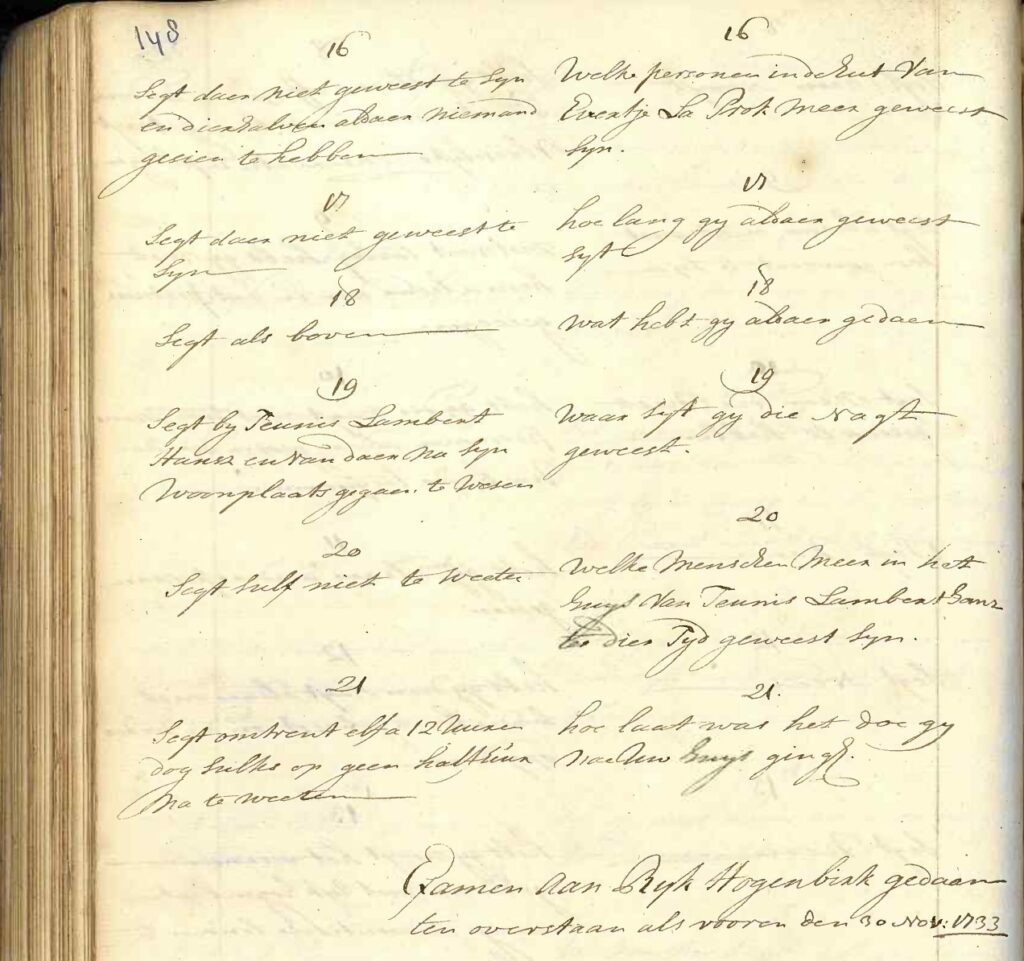 148
16
Segt daer niet geweest te syn
en dierhalven aldaer niemand
gesien te hebben
17
Segt daer niet geweest te
Syn
18
Segt als boven
19
Segt by Teunis Lambert
Hansz en van daer na syn
Woonplaats gegaen te wesen
20
Segt sulx niet te weeten
21
Segt omtrent elf a 12 Uuren
dog sulks op geen half uur
na te weeten
16
Welke personen in de hut van
Evertje La Prok meer geweest
syn.
17
hoe lang gy aldaer geweest
syt
18
wat hebt gy aldaer gedaen
19
Waar syt gy die Nagt
geweest.
20
Welke Menschen Meer in het
huys van Teunis Lambert Hansz
ter dier Tyd geweest syn.
21.
hoe laat was het doe gy
nae Uw huys gingt.
Examen aan Ryk Hogenbirk gedaan
ten overstaan als vooren den 30 Nov: 1733